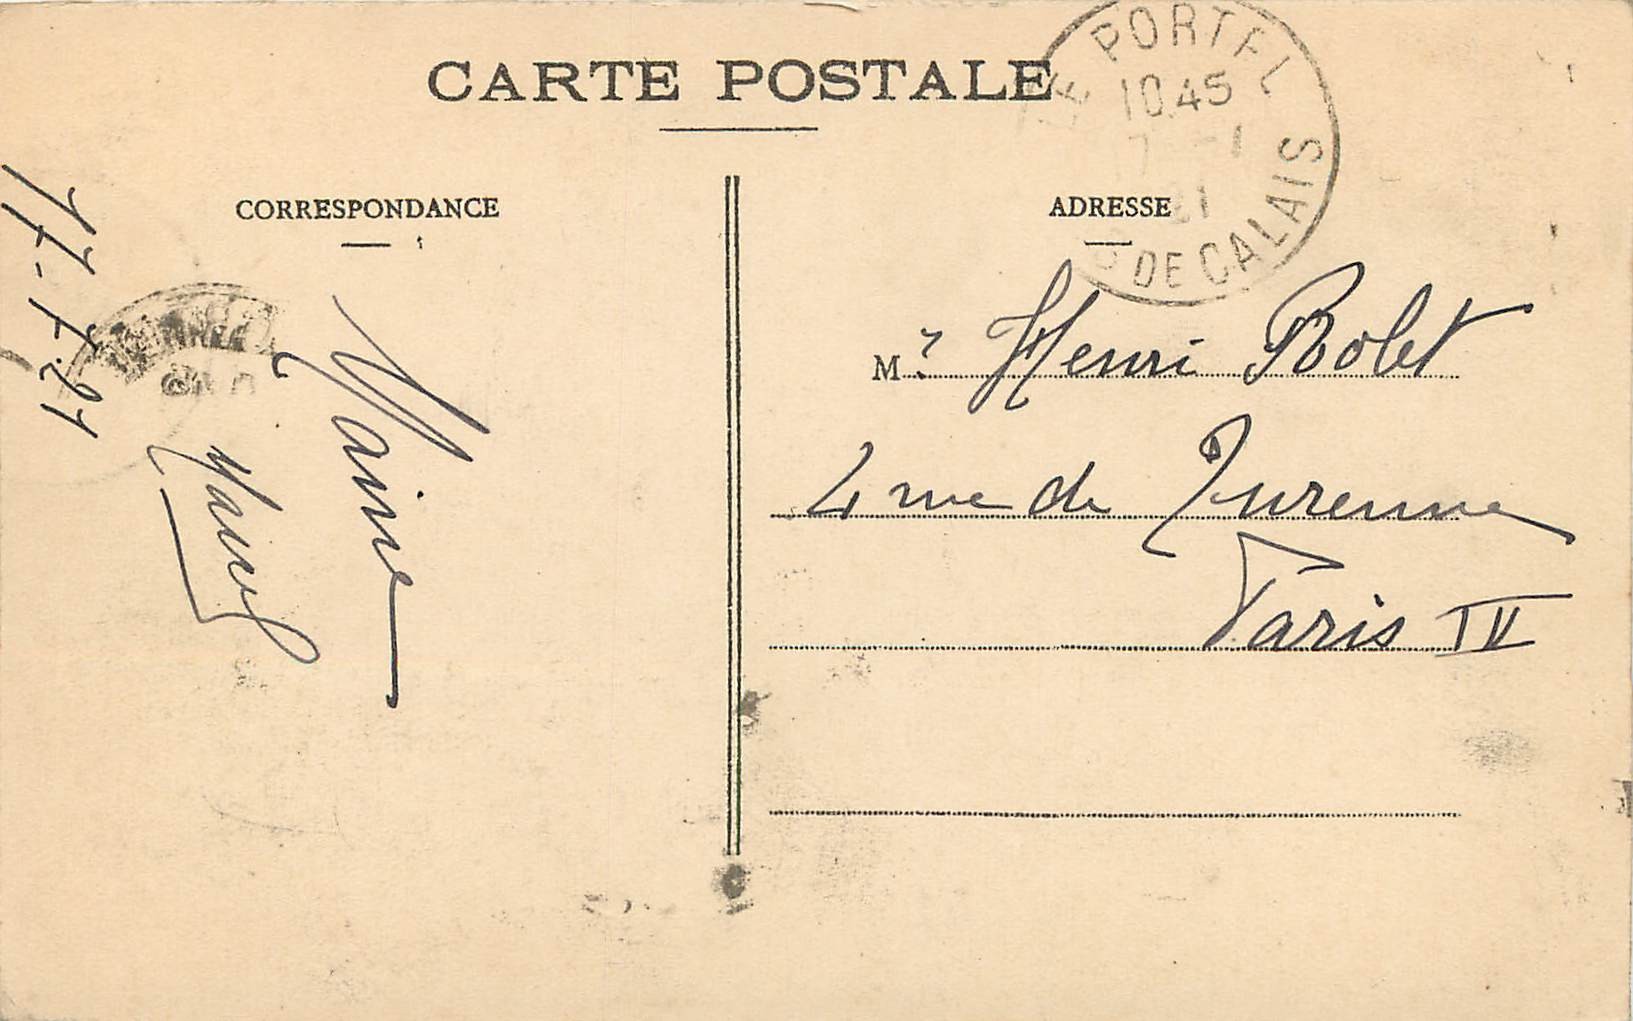 CARTE POSTALE
LE PORTEL
10 45
17 -1
21
DE CALAIS
CORRESPONDANCE
ADRESSE
17-1-21
Mr Henri Rolet
4 rue de Turenne
Paris IV